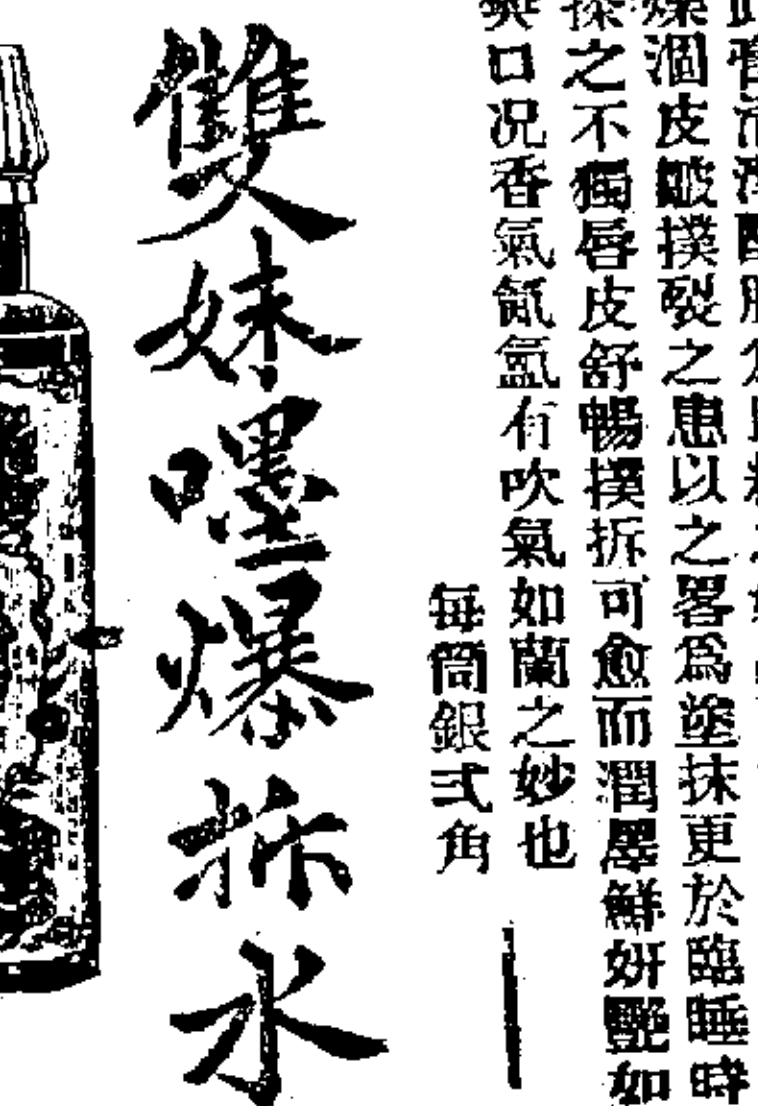 燥涸皮皸撲裂之患以之畧爲塗抹更於臨睡時
搽之不獨唇皮舒暢撲拆可愈而潤澤鮮妍艷如
口况香氣氤氲有吹氣如蘭之妙也
每筒銀弍角
雙妹嘿爆拆水